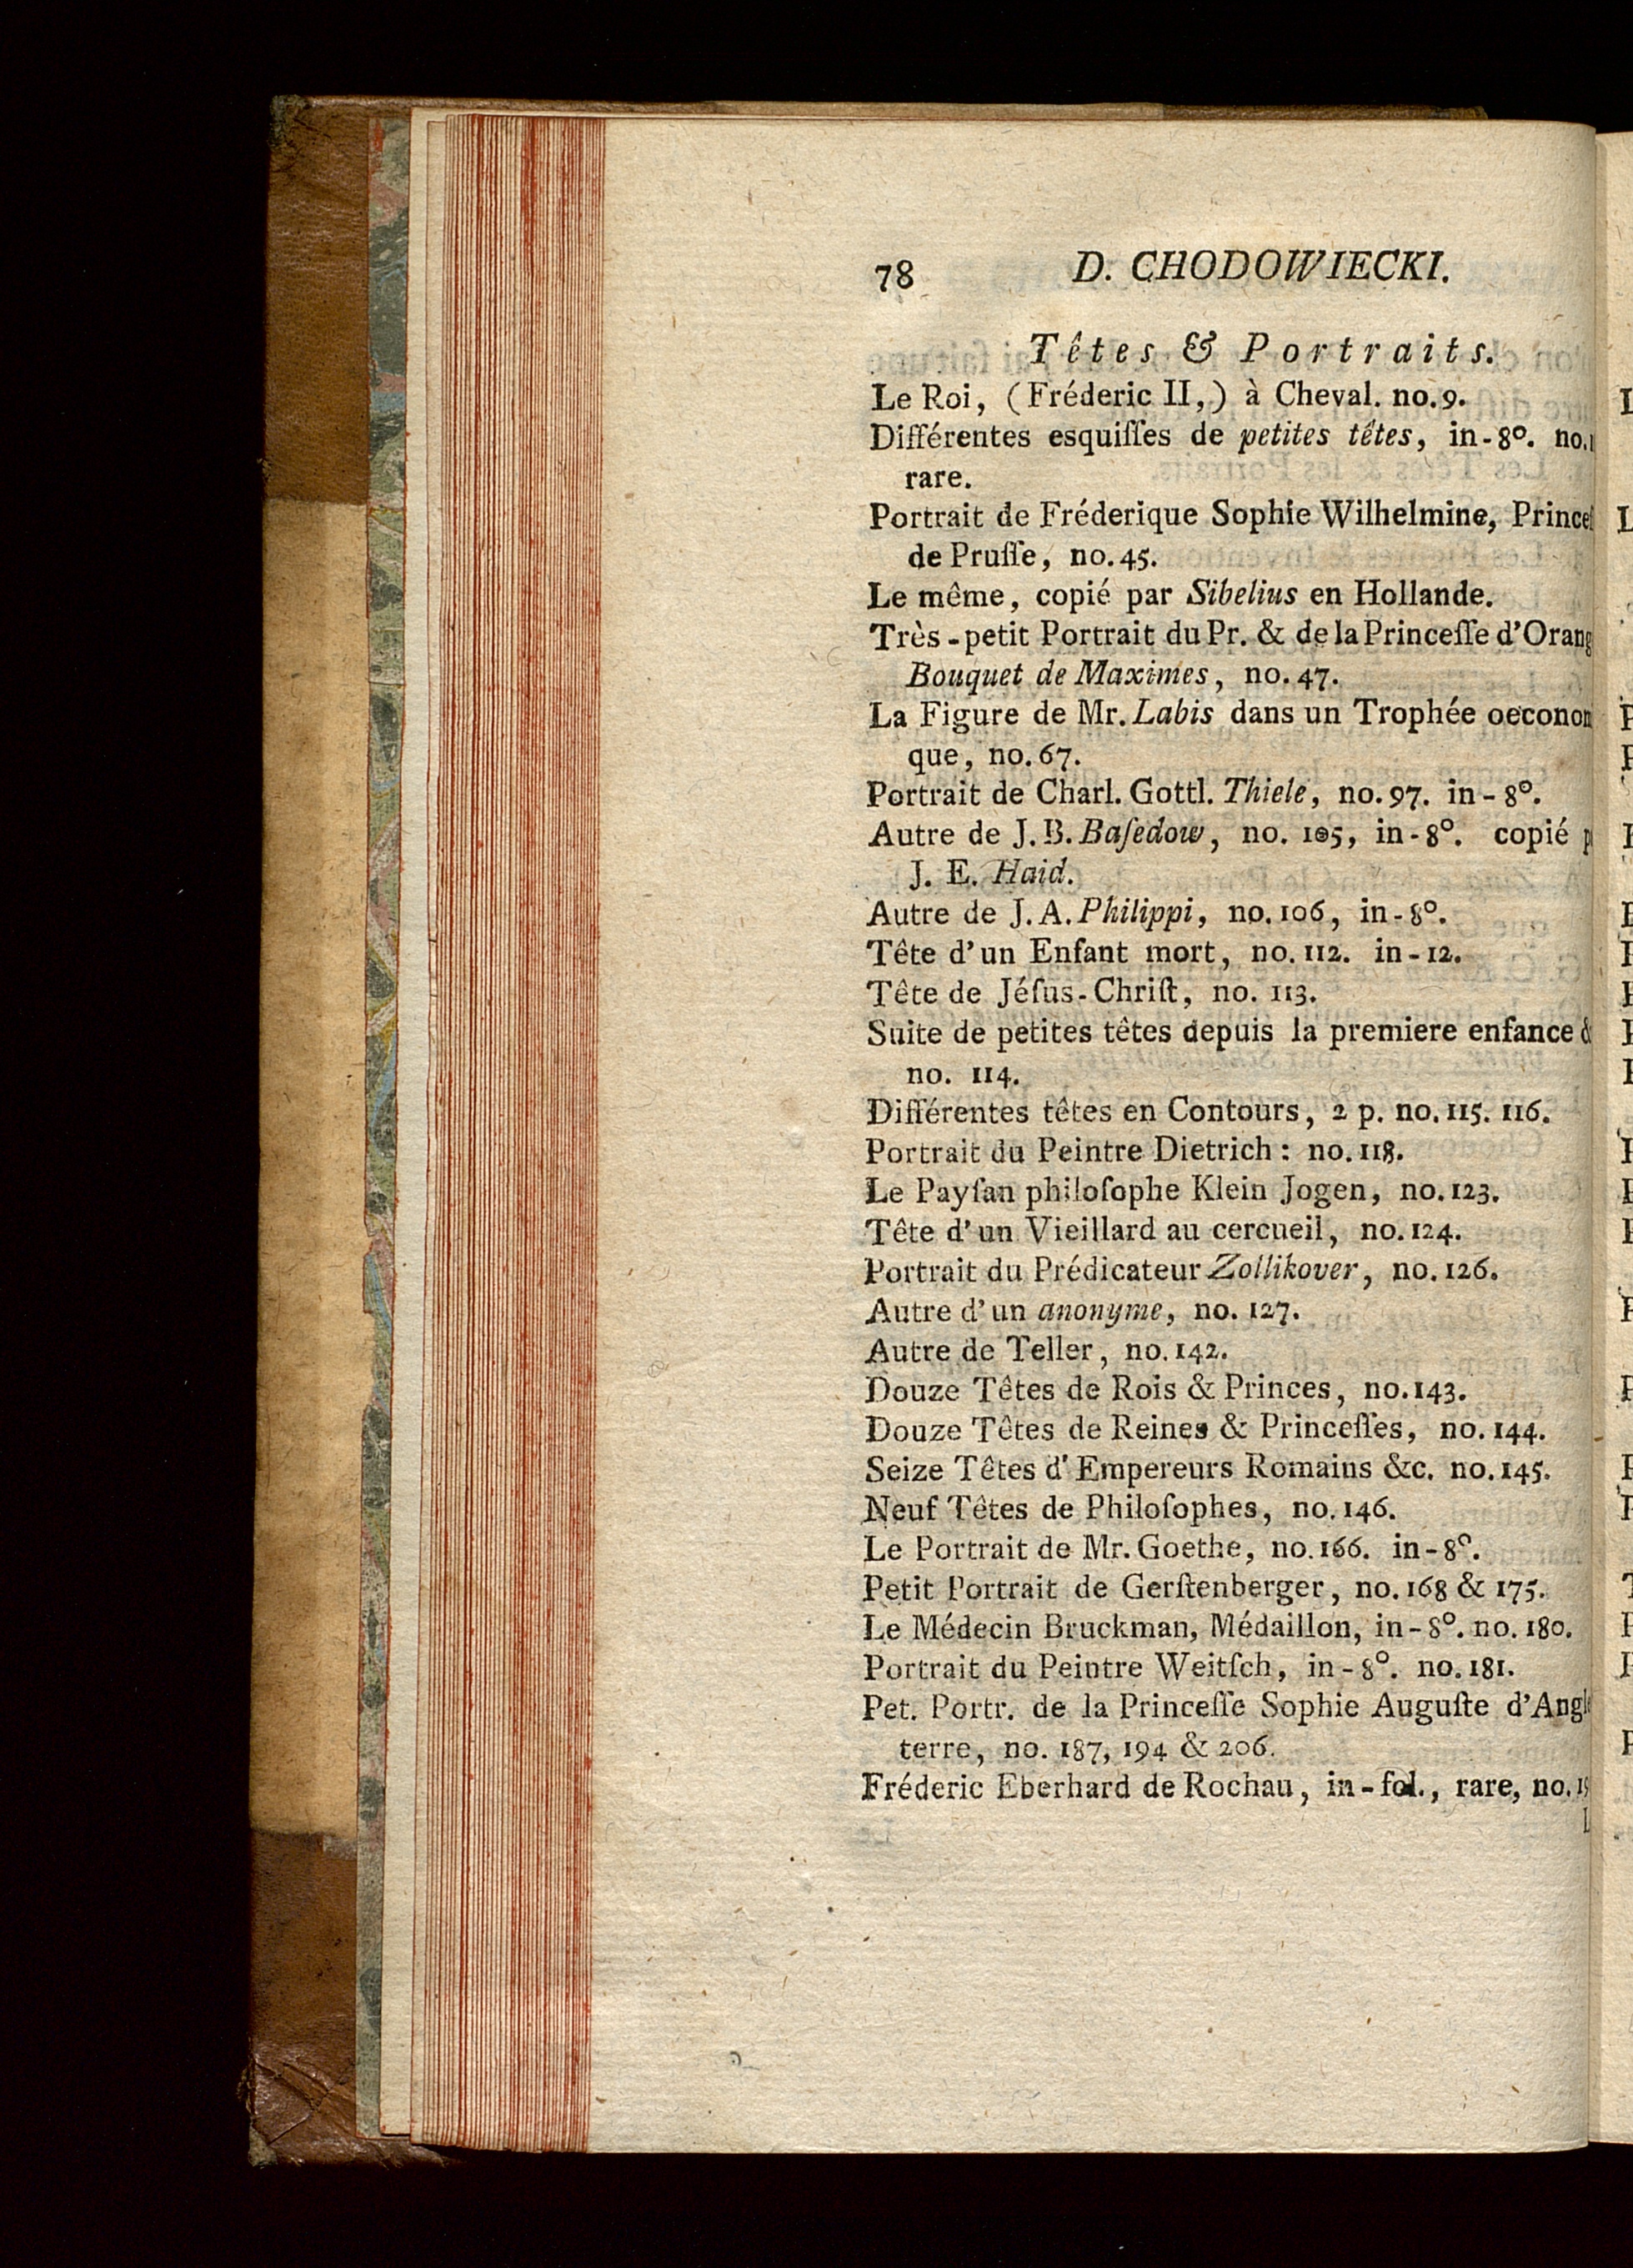 78 D. CHODOWIECKI.
Têtes & Portraits.
Le Roi, (Fréderic II,) à Cheval. no. 9.
Différentes esquiſſes de petites têtes, in-8°. no.
rare.
Portrait de Fréderique Sophie Wilhelmine, Princeſ
de Pruſſe, no. 45.
Le même, copié par Sibelius en Hollande.
Très-petit Portrait du Pr. & de la Princeſſe d'Orang
Bouquet de Maximes, no. 47.
La Figure de Mr. Labis dans un Trophée oeconom
que, no. 67.
Portrait de Charl. Gottl. Thiele, no. 97. in-8°.
Autre de J. B. Baſedow, no. 105, in-8°. copié p
J. E. Haid.
Autre de J. A. Philippi, no. 106, in-8°.
Tête d'un Enfant mort, no. 112. in-12.
Tête de Jéſus-Chriſt, no. 113.
Suite de petites têtes depuis la premiere enfance &
no. 114.
Différentes têtes en Contours, 2 p. no. 115. 116.
Portrait du Peintre Dietrich: no. 118.
Le Payſan philoſophe Klein Jogen, no. 123.
Tête d'un Vieillard au cercueil, no. 124.
Portrait du Prédicateur Zollikover, no. 126.
Autre d'un anonyme, no. 127.
Autre de Teller, no. 142.
Douze Têtes de Rois & Princes, no. 143.
Douze Têtes de Reines & Princeſſes, no. 144.
Seize Têtes d'Empereurs Romains &c. no. 145.
Neuf Têtes de Philoſophes, no. 146.
Le Portrait de Mr. Goethe, no. 166. in-8°.
Petit Portrait de Gerſtenberger, no. 168 & 175.
Le Médecin Bruckman, Médaillon, in-8°. no. 180.
Portrait du Peintre Weitſch, in-8°. no. 181.
Pet. Portr. de la Princeſſe Sophie Auguſte d'Angle
terre, no. 187, 194 & 206.
Fréderic Eberhard de Rochau, in-fol., rare, no.